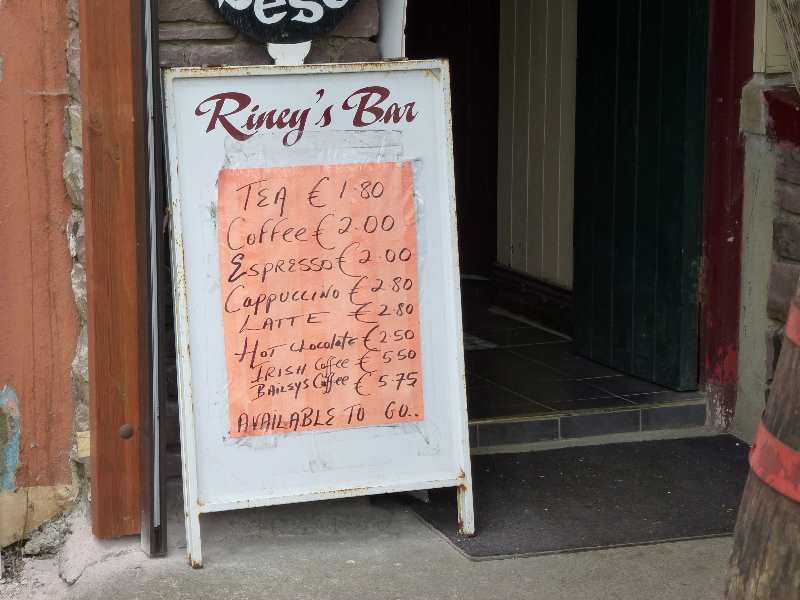 Riney's Bar
TEA €1.80
Coffee €2.00
ESPRESSO €2.00
CAPPUCCINO €2.80
LATTE €2.80
HOT Chocolate €2.50
IRISH Coffee €5.50
BAILEYS Coffee €5.75
AVAILABLE TO GO..